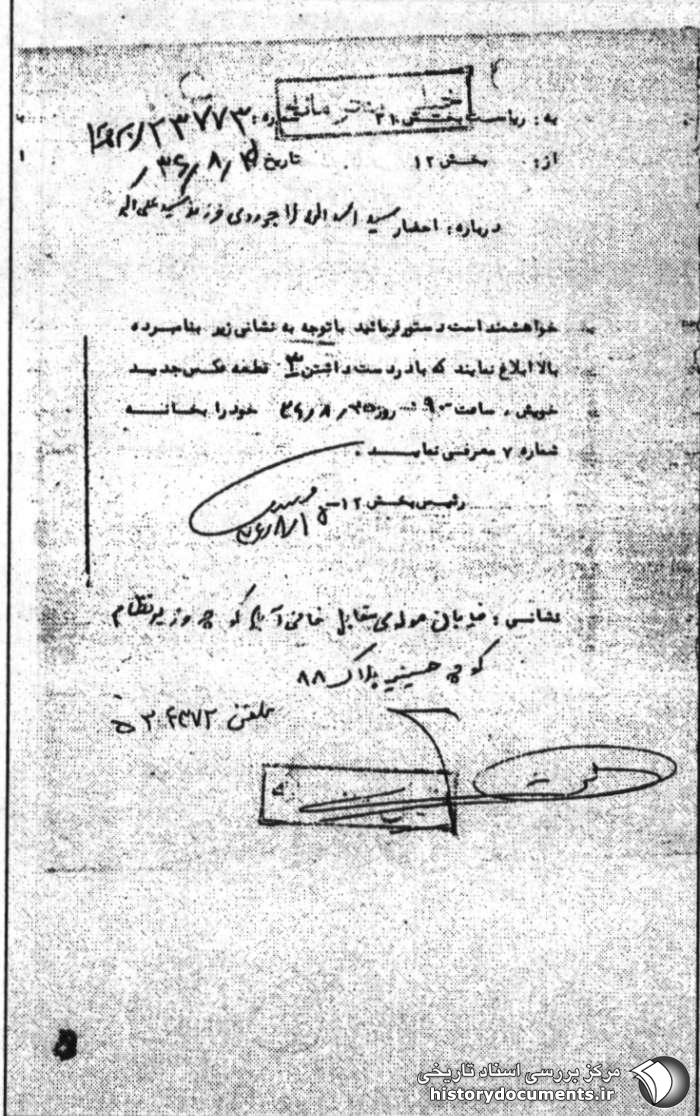 خیلی محرمانه
به: ریاست بخش ۲۱ شماره: ۲۳۷۷۳
از: بخش ۱۲ تاریخ ۳۶/۸/
درباره: احضار سید اسداله لاجوردی فرزند سید علی اکبر
خواهشمند است دستور فرمائید با توجه به نشانی زیر بنامبرده
بالا ابلاغ نمایند که با در دست داشتن ۳ قطعه عکس جدید
خویش، ساعت ۹۰۰ روز ۳۶/۸/ خود را بخانه
شماره ۷ معرفی نماید.
رئیس بخش ۱۲
۳۶/۸/۱
نشانی: خیابان مقابل کوچه وزیر نظام
کوچه حسینی پلاک ۸۸
تلفن
۵
مرکز بررسی اسناد تاریخی
historydocuments.ir